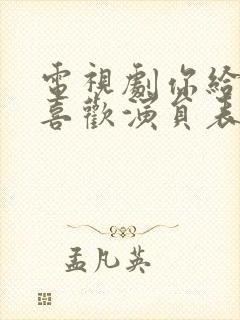 電視劇你給
喜歡演員表
孟凡英